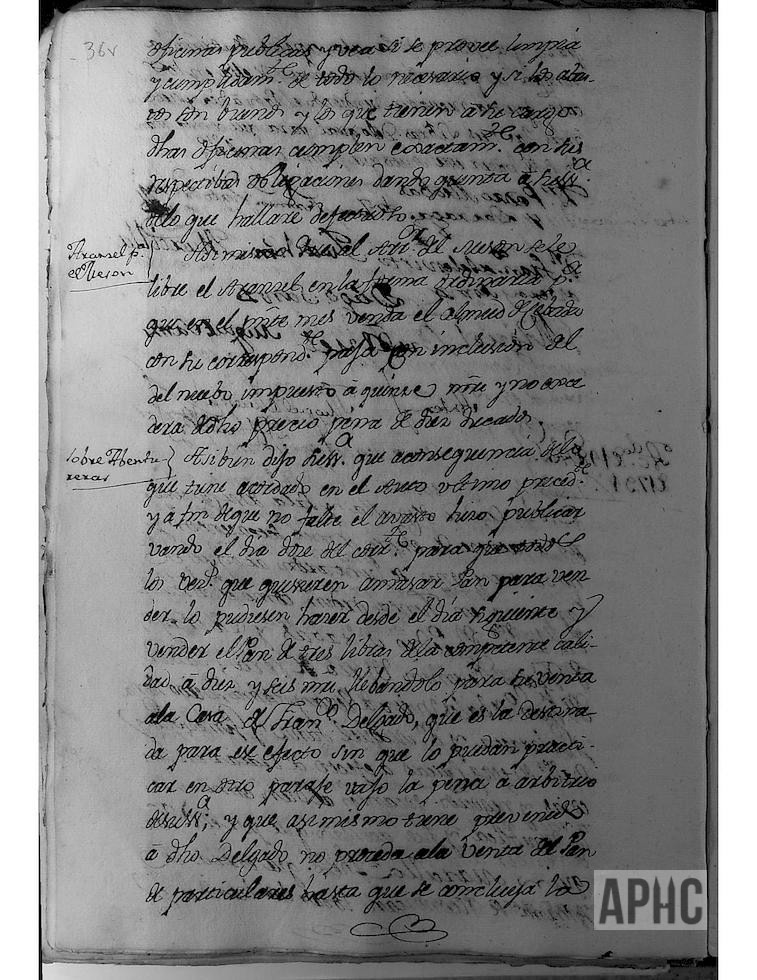 36v
oficinas publicas y vea si se provee limpia
y cumplidam.te de todo lo necesario y si los abas-
tos son buenos y los que tienen a su cargo
dhas oficinas cumplen exactam.te con sus
respectibas obligaciones dando quenta á su S.a
delo que hallare defectuoso
Aransel p.a
el Meson
Asimismo que al Arr.or del Meson se le
libre el Aransel en la forma ordinaria p.a
que en el mes venda el almud de Cebada
con su correspond.te paja con inclusion del
del nuebo impuesto á quinse mrs y no exce
dera de dho precio pena de diez ducados
sobre
reras
Asi bien dijo su S.a que aconsequencia delo
que tiene acordado en el Auto ultimo preced.te
y a fin de que no falte el avasto hizo publicar
vando el dia doze del corr.te para que todos
los vez.s que quisieren amasar Pan para ven
der lo pudiesen hazer desde el dia siguiente y
vender el Pan de tres libras dela competente cali-
dad á diez y seis mrs, llebandolo para su venta
ala Casa de Fran.co Delgado, que es la destina-
da para ese efecto sin que lo puedan practi-
car en otro paraje vajo la pena á arbitrio
de su S.a; y que asimismo tiene prevenido
á dho Delgado no proceda ala venta del Pan
de particulares hasta que se concluya la
APHC